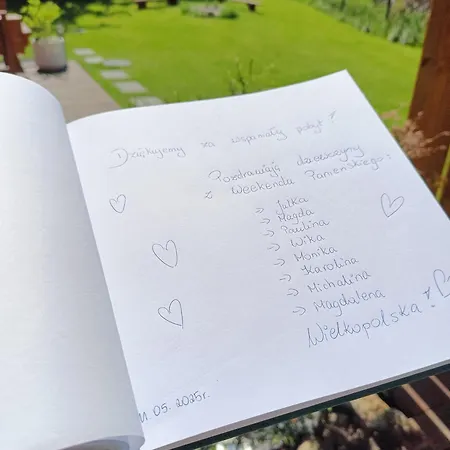 Dziękujemy za wspaniały pobyt!
Pozdrawiają dziewczyny
z Weekendu Panieńskiego:
→ Julka
→ Magda
→ Paulina
→ Wika
→ Monika
→ Karolina
→ Michalina
→ Magdalena
Wielkopolska!
11.05.2025r.